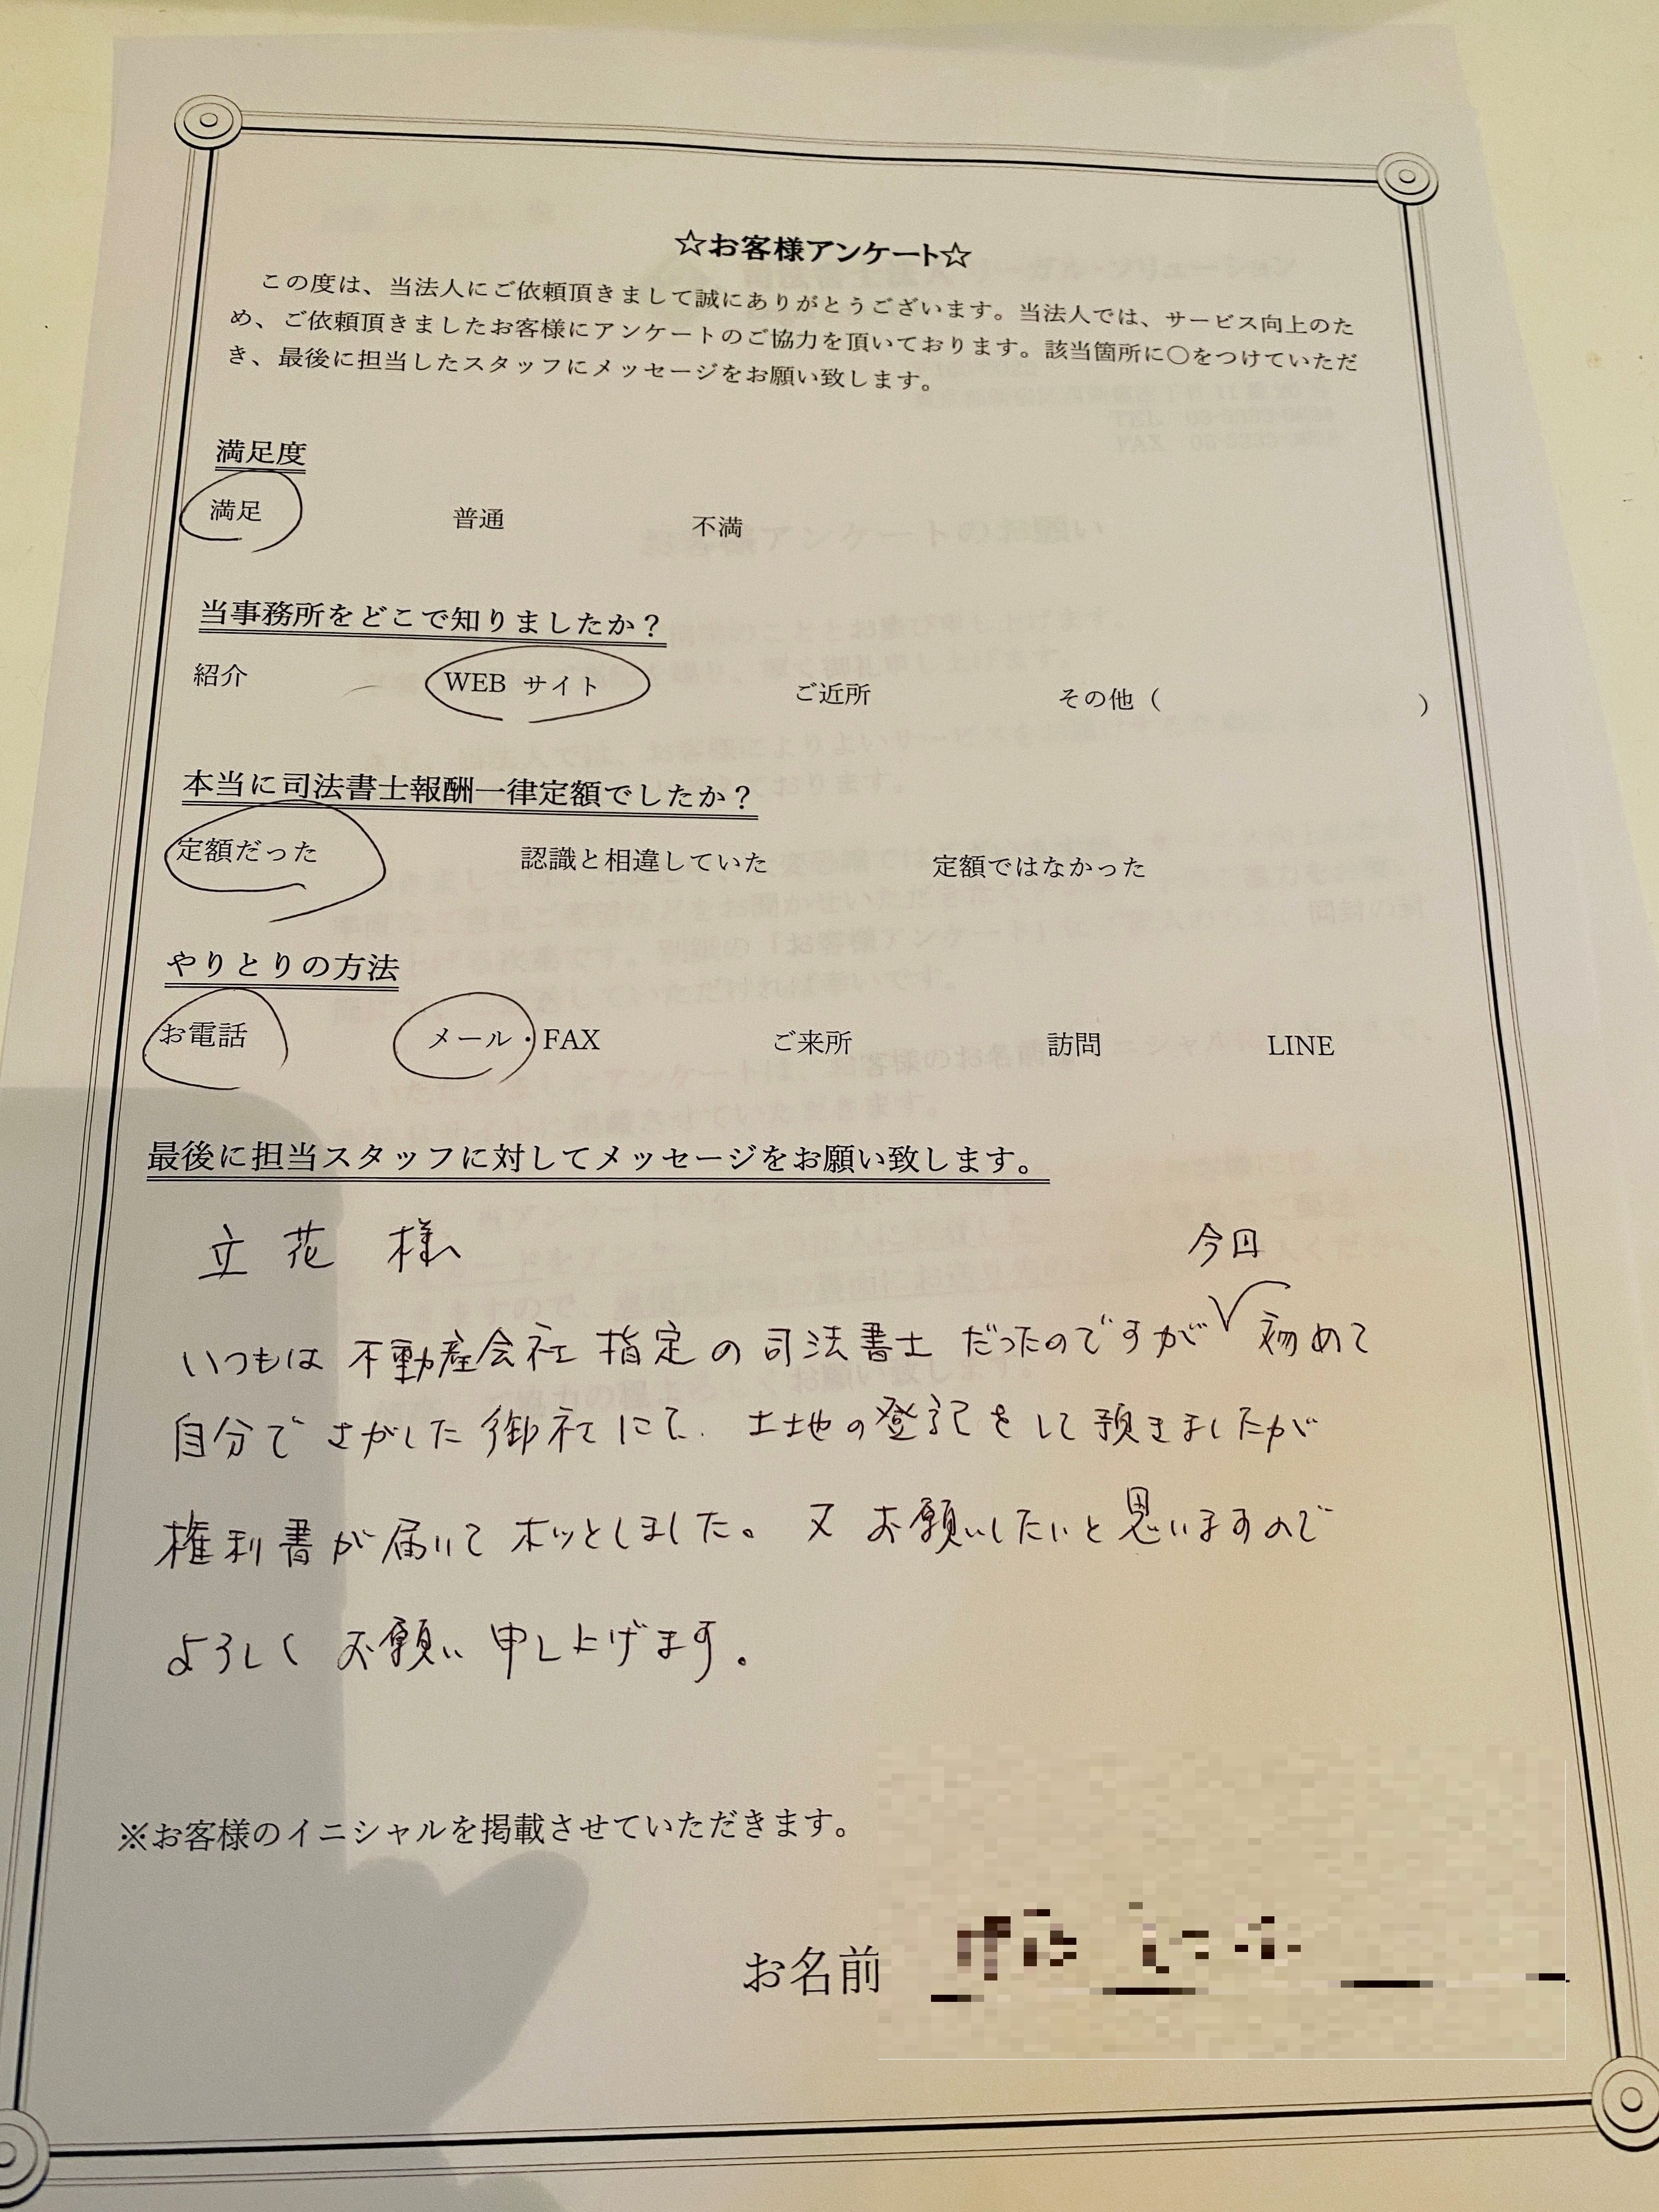 ☆お客様アンケート☆
この度は、当法人にご依頼頂きまして誠にありがとうございます。当法人では、サービス向上のた
め、ご依頼頂きましたお客様にアンケートのご協力を頂いております。該当箇所に〇をつけていただ
き、最後に担当したスタッフにメッセージをお願い致します。
満足度
満足 普通 不満
当事務所をどこで知りましたか？
紹介 WEB サイト ご近所 その他（ ）
本当に司法書士報酬一律定額でしたか？
定額だった 認識と相違していた 定額ではなかった
やりとりの方法
お電話 メール・FAX ご来所 訪問 LINE
最後に担当スタッフに対してメッセージをお願い致します。
立花 様へ
今回
いつもは 不動産会社 指定の司法書士 だったのですが 初めて
自分で さがした 御社にて、土地の登記をして頂きましたが
権利書が届いて ホッとしました。 又 お願いしたいと思いますので
よろしく お願い 申し上げます。
※お客様のイニシャルを掲載させていただきます。
お名前